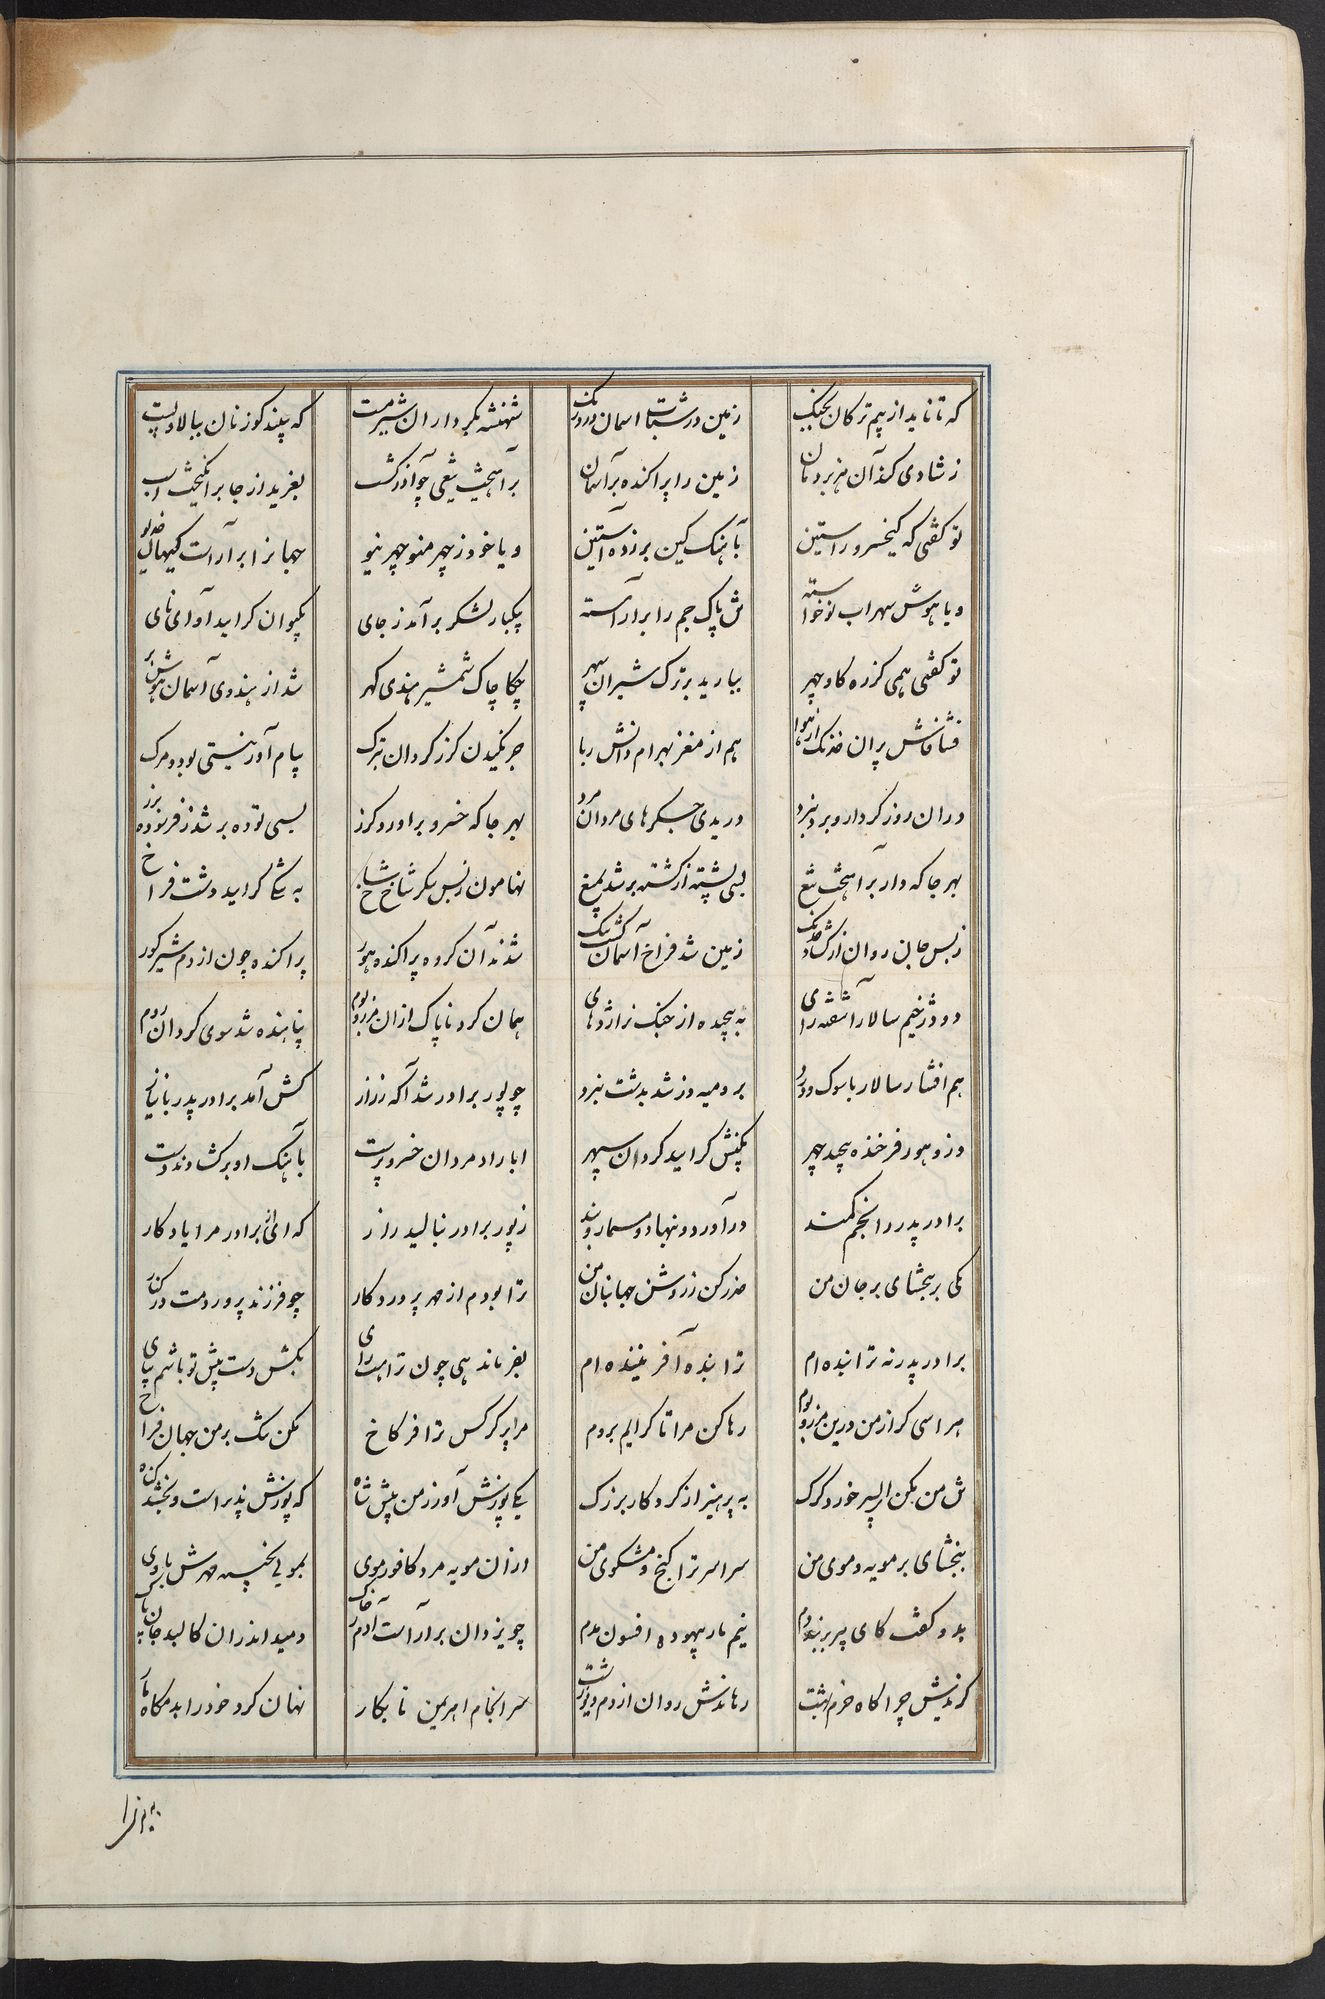 که تا ناید از بیم ترکان بجنگ زمین در شتاب آسمان در درنگ شهنشه بکردار ان شیر مست که بیند کوزنان ببالا و پست
ز شادی کند آن هزبر دمان زمین را پراکنده بر آسمان برآهیخت تیغی چو آذرکشسب بغرید از جا برانگیخت اسب
تو گفتی که کیخسرو راستین بآهنک کین برزده آستین و یا خود ز چهر منوچهر نیو جهانرا برآراست کیهان خدیو
و یا هوش سهراب نوخواسته تن پاک جم را برآراسته یکبار لشکر برآمد ز جای بکیوان کراید آوای نای
تو گفتی همی کرزه کاوچهر ببارید بر ترک شیران سپهر چکاچاک شمشیر هندی کهر شد از هندوی آسمان هوش بر
فشافاش پران خدنک از هوا هم از مغز بهرام دانش ربا جرنکیدن کرز کردان بترک پیام آور نیستی بود و مرک
در ان روز کردار و برد نبرد دریدی جکرهای مردان مرد بهر جا که خسرو براورد کرز بسی توده بر شد ز فرسوده برز
بهر جا که دار برآهیخت تیغ بسی پشته از کشته بر شد بمیغ بهامون ز بس پیکر شاخ شاخ به تنگی کرایید دشت فراخ
ز بس جان روان از کشاد خدنک زمین شد فراخ آسمان کشت تنک شدند آن کروه پراکنده هور پراکنده چون از دم شیر کور
دو دژخیم سالار آشفته رای به پیچیده از جنک نر اژدهای همان کرد ناپاک ازان مرز و بوم پناهنده شد سوی کردان روم
هم افشار سالار با سوک و درد برومیه دز شد بدشت نبرد چو پور برادر شد آکه ز راز کش آمد برادر پدر با نیاز
وز و هور فرخنده پیچید چهر بکینش کرایید کردان سپهر ابا راد مردان خسروپرست بآهنک او برکشادند دست
برادر پدر را بخم کمند درآورد و بنهاد و مسمار و بند ز پور برادر بنالید زار که ای از برادر مرا یادکار
یکی بر ببخشای بر جان من حذر کن ز روشن جهانبان من ترا بودم از مهر پروردکار چو فرزند پروردمت در کنار
برادر پدر نه ترا بنده ام ترا بنده آفریننده ام بفرماندهی چون ترا هست رای بکش دست پیش تو باشم بپای
هراسی کر از من درین مرز و بوم رها کن مرا تا کرایم بروم مرا پرکرکس ترا فر کاخ مکن تنک بر من جهان فراخ
تن من مکن ای پسر خورد کرک به پرهیز از کردکار بزرک یکی پوزش آور ز من پیش شاه که پوزش پذیر است و بخشد کناه
ببخشای بر مویه و موی من سراسر ترا کنج و مشکوی من ازان مویه مرد کافور موی بمویی نجنبید مهرش بروی
بدو کفت کای پیر برنده دم نیم مار بیهوده افسون مدم چو یزدان برآراست آدم ز خاک دمید اندران کالبد جان پاک
کزیدش چراکاه خرم بهشت رهاندش روان از دم دیو زشت سرانجام اهریمن نابکار نهان کرد خود را بدمکاه مار